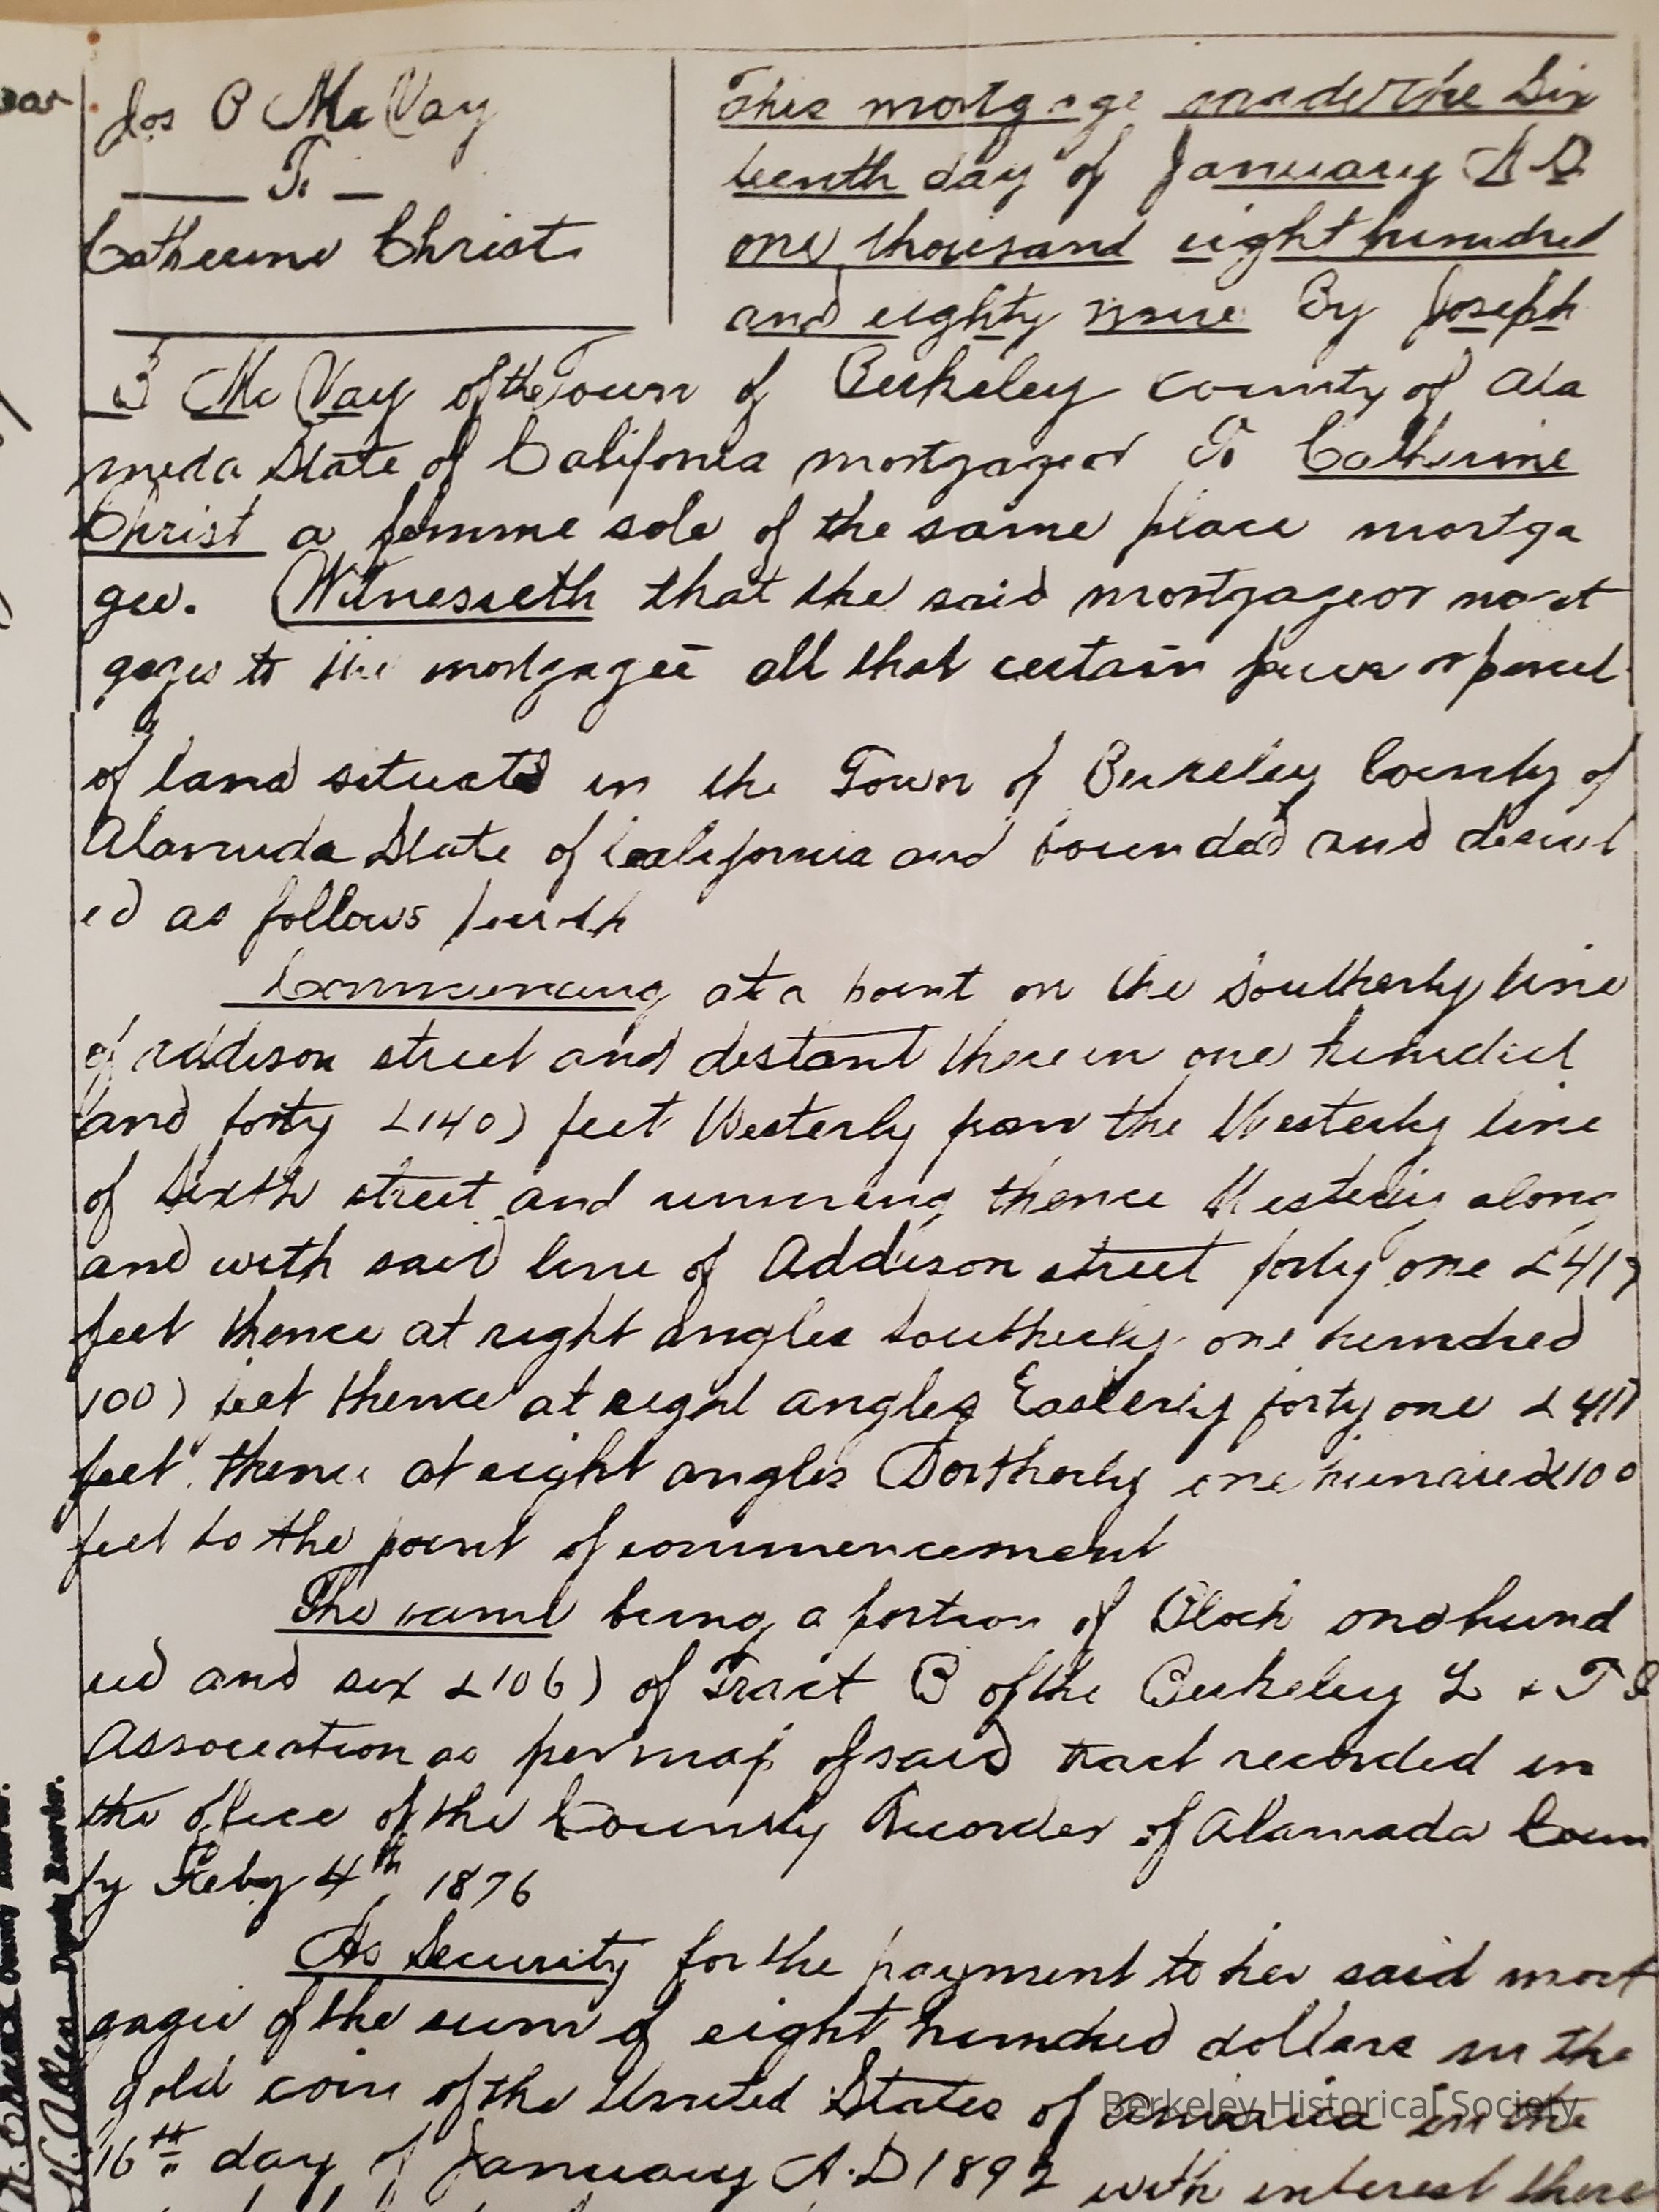 Jos B McVay
To
Catherine Christ
This mortgage made the Six
teenth day of January A D
one thousand eight hundred
and eighty nine By Joseph
B McVay of the Town of Berkeley County of Ala
meda State of Califonia mortgageor To Catherine
Christ a femme sole of the same place mortga
gee. Witnesseth that the said mortgageor mort
gages to the mortgagee all that certain piece or parcel
of land situated in the Town of Berkeley County of
Alameda State of California and bounded and describ
ed as follows
Commencing at a point on the Southerly line
of Addison street and distant therein one hundred
and forty (140) feet Westerly from the Westerly line
of Sixth street and running thence Westerly along
and with said line of Addison street forty one (41)
feet thence at right angles Southerly one hundred
100) feet thence at right angles Easterly forty one (41)
feet thence at right angles Northerly one hundred (100
feet to the point of commencement
The same being a portion of Block one hund
red and six (106) of Tract B of the Berkeley L & T I
Association as per map of said tract recorded in
the office of the County Recorder of Alameda Coun
ty Feby 4th, 1876
As Security for the payment to her said mort
gagee of the sum of eight hundred dollars in the
gold coin of the United States of America in the
16th day of January A.D 1892 with interest there
County Recorder.
Deputy Recorder.
Berkeley Historical Society